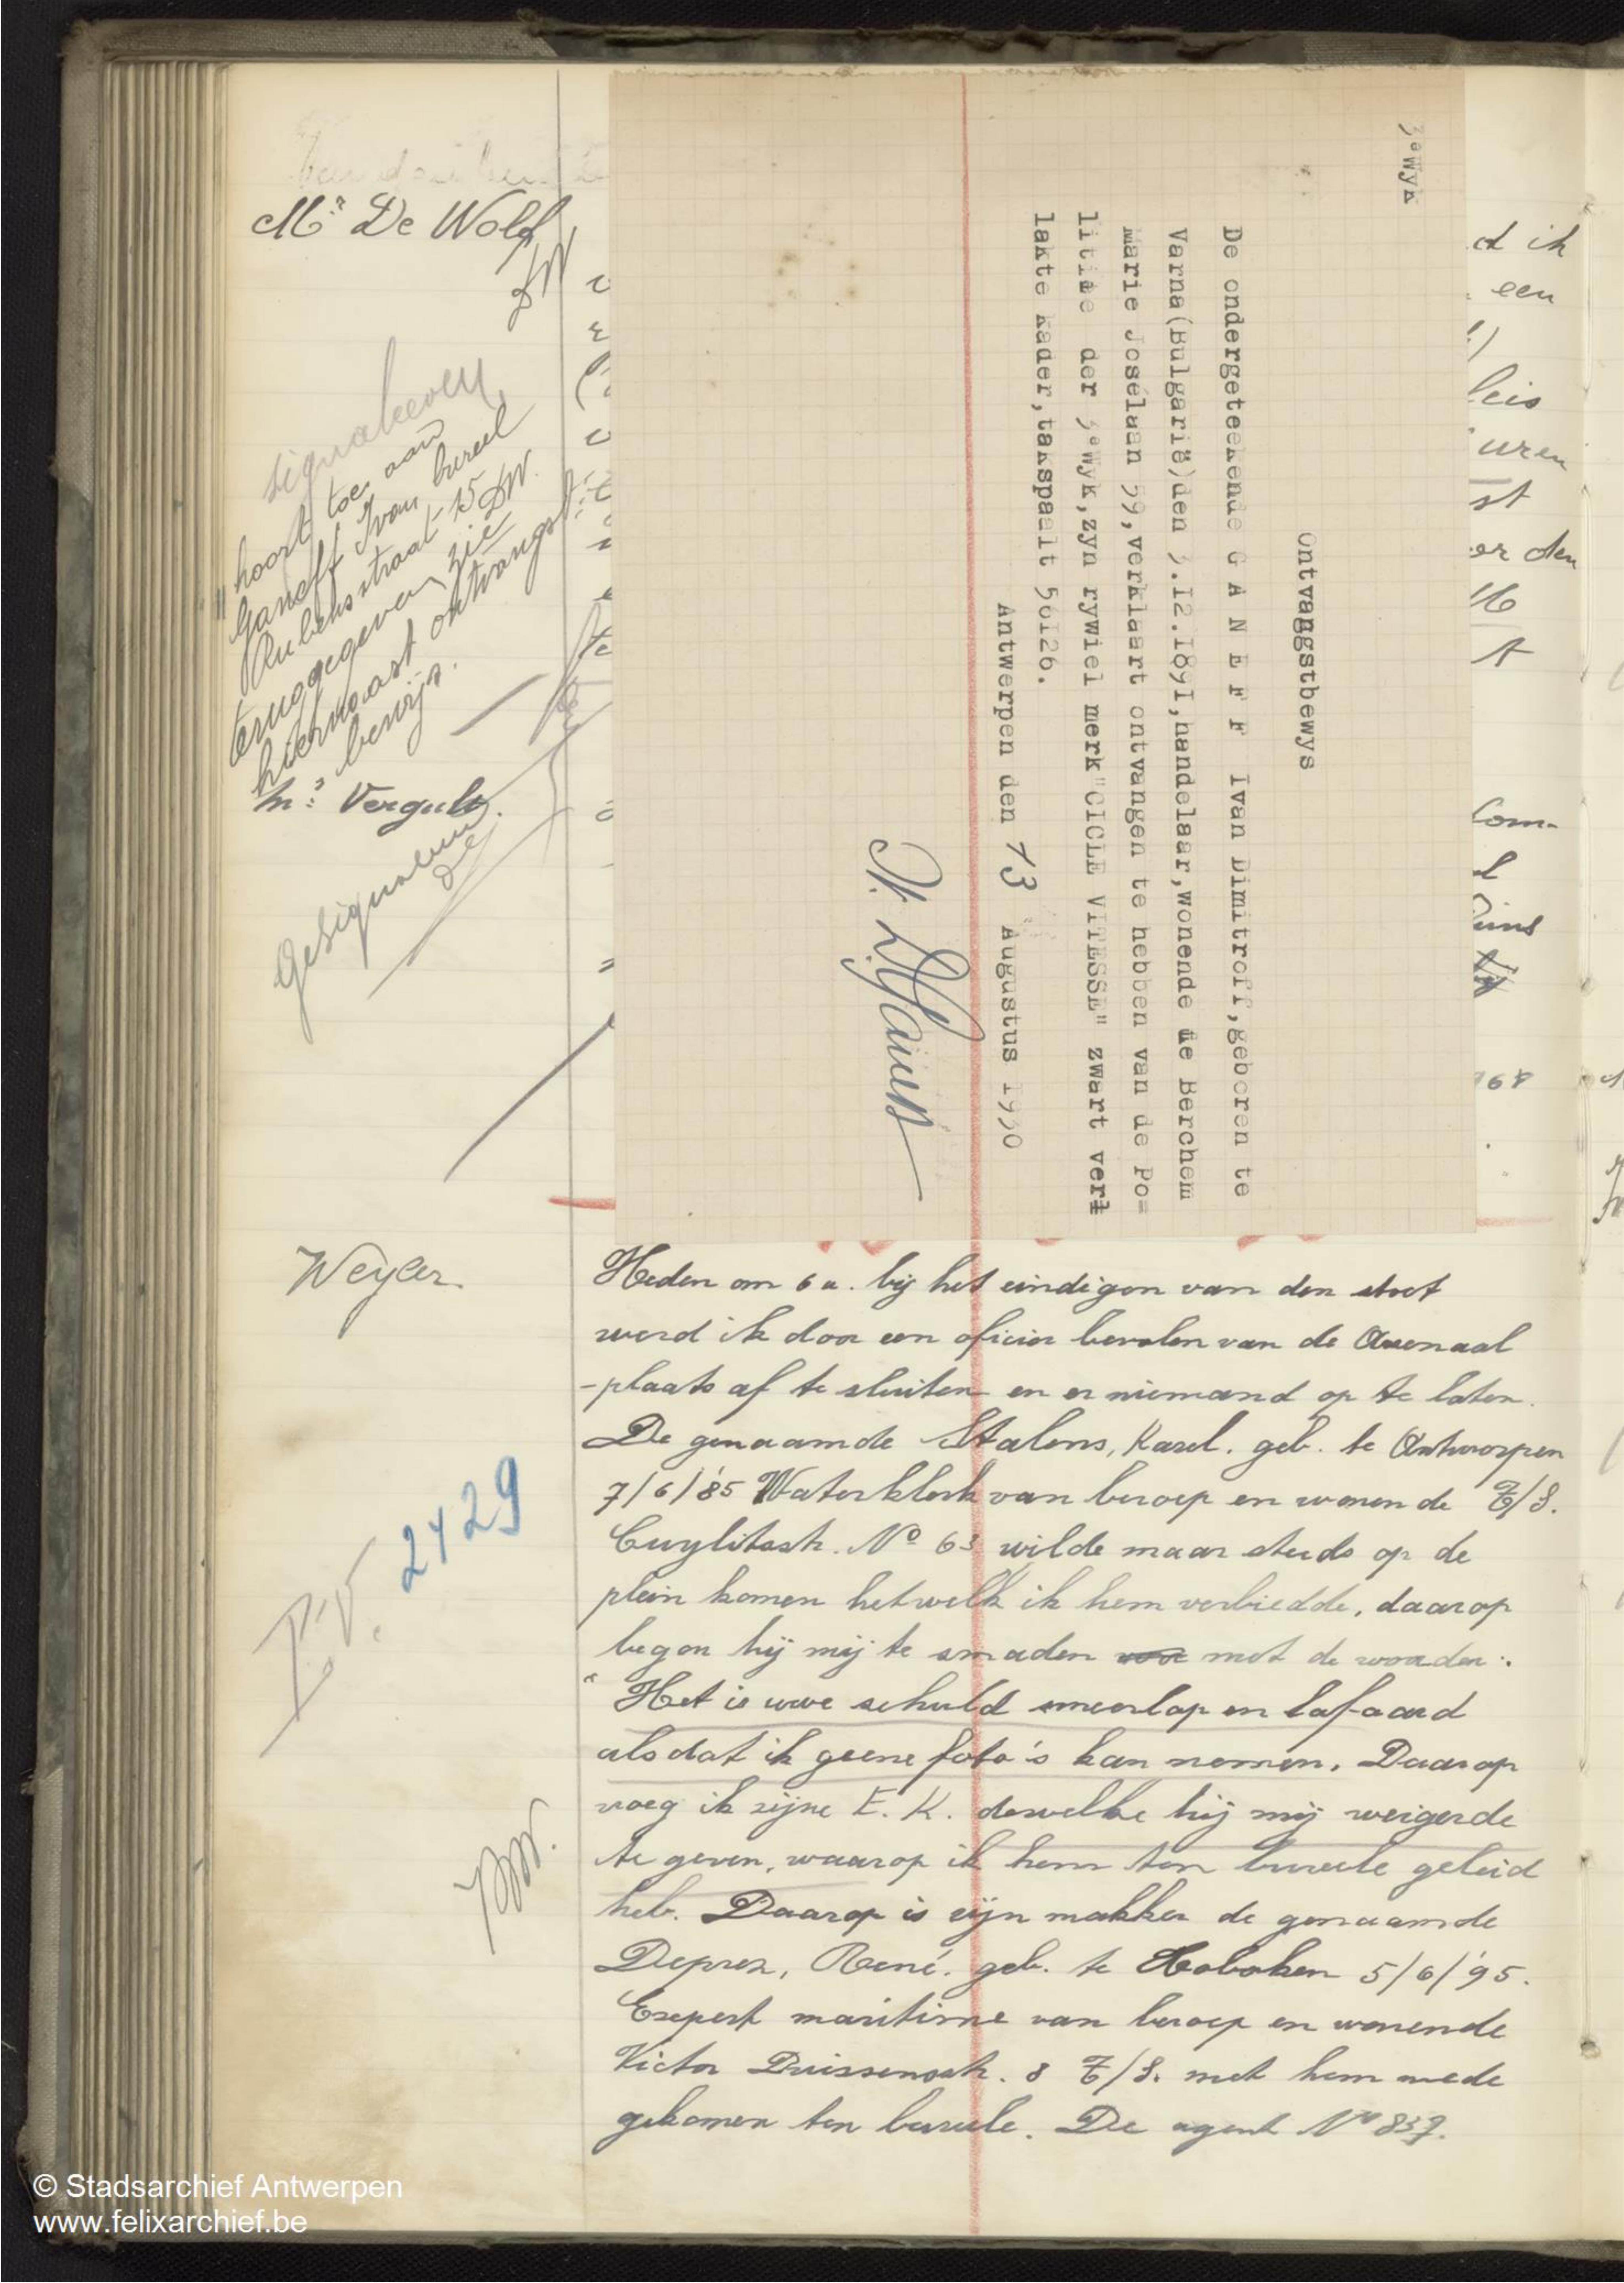 Mr De Wolf
DW
signaleeren
"hoort toe, aan
Ganeff Ivan bureel
Rubensstraat 15 DW.
teruggegeven zie
hiernaast ontvangst-
bewijs.
Mr Vergult.
Gesignaleerd
3eWyk
Ontvangstbewys
De ondergeteekende G A N E F F Ivan Dimitroff,geboren te
Varna(Bulgarië)den 3.12.1891,handelaar,wonende te Berchem
Marie Josélaan 59,verklaart ontvangen te hebben van de Po=
litie der 3eWyk,zyn rywiel merk"CICLE VITESSE" zwart verl
lakte kader,takspaalt 50126.
Antwerpen den 13 Augustus 1930
d ik
een
leis
uren
st
er den
t
Com-
l
968
Weyler.
Heden om 6 u. bij het eindigen van den stoet
werd ik door een oficier bevolen van de Arsenaal
-plaats af te sluiten en er niemand op te laten.
De genaamde Stalens, Karel. geb. te Antwerpen
7/6/'85 Waterklerk van beroep en wonende T/S.
Cuylitsstr. No 63 wilde maar steeds op de
plein komen hetwelk ik hem verbiedde, daarop
begon hij mij te smaden met de woorden:
"Het is uwe schuld smeerlap en lafaard
als dat ik geene foto's kan nemen. Daarop
vroeg ik zijne E. K. dewelke hij mij weigerde
te geven, waarop ik hem ten bureele geleid
heb. Daarop is zijn makker de genaamde
Deprez, René. geb. te Hoboken 5/6/'95.
Expert maritime van beroep en wonende
Victor Driessensstr. 8 T/S. met hem mede
gekomen ten bureele. De agent No 837.
P.V. 2429
DW.
© Stadsarchief Antwerpen
www.felixarchief.be